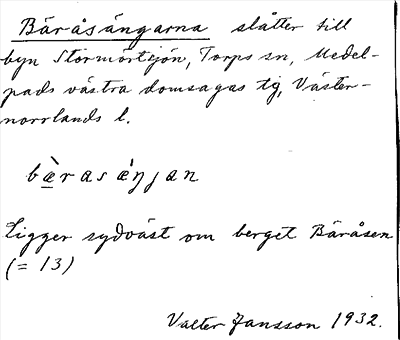 Bäråsängarna slåtter till
byn Stormörtsjön, Torps sn, Medel-
pads västra domsagas tg, Väster-
norrlands l.
bæ̀rasæ̀ŋjan
Ligger sydväst om berget Bäråsen
(= 13)
Valter Jansson 1932.